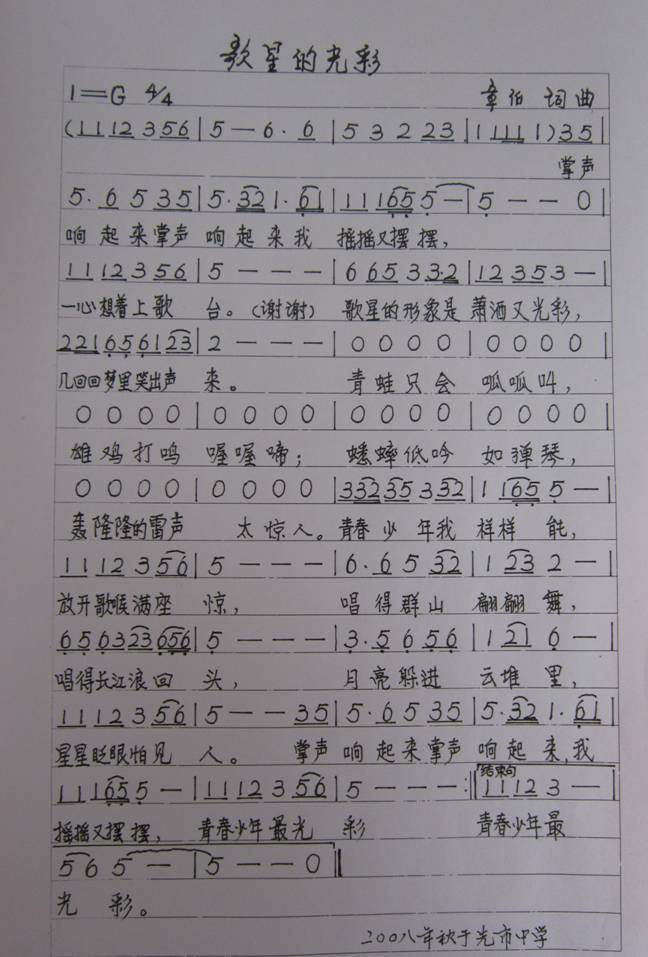 歌星的光彩
1=G 4/4 章伯 词曲
(1112 3 56|5—6·6|5 3 2 23|1 111 1)35|
掌声
5·6 5 35|5·32 1·61|11165 5—|5——0|
响起来掌声 响起来我 摇摇又摆摆,
1112 3 56|5———|6 65 3 3·2|12 353—|
一心想着上歌 台。(谢谢) 歌星的形象是 萧洒又光彩,
221656123|2———|0000|0000|
几回回梦里笑出声 来。 青蛙只会 呱呱叫,
0000|0000|0000|0000|
雄鸡打鸣 喔喔啼; 蟋蟀低吟 如弹琴,
0000|0000|33235 3 32|1 165 5—|
轰隆隆的雷声 太惊人。青春少年我 样样 能,
1112 3 56|5———|6·6 5 32|1 23 2—|
放开歌喉满座 惊, 唱得群山 翩翩 舞,
656323656|5———|3·5 6 56|1 21 6—|
唱得长江浪回 头, 月亮躲进 云堆 里,
1112 3 56|5——35|5·6 5 35|5·32 1·61|
星星眨眼怕见 人。 掌声 响起来掌声 响起来,我
11165 5—|1112 3 56|5———:‖结束句 1112 3—|
摇摇又摆摆, 青春少年最光 彩 青春少年最
56 5—|5——0‖
光 彩。
二00八年秋于光市中学